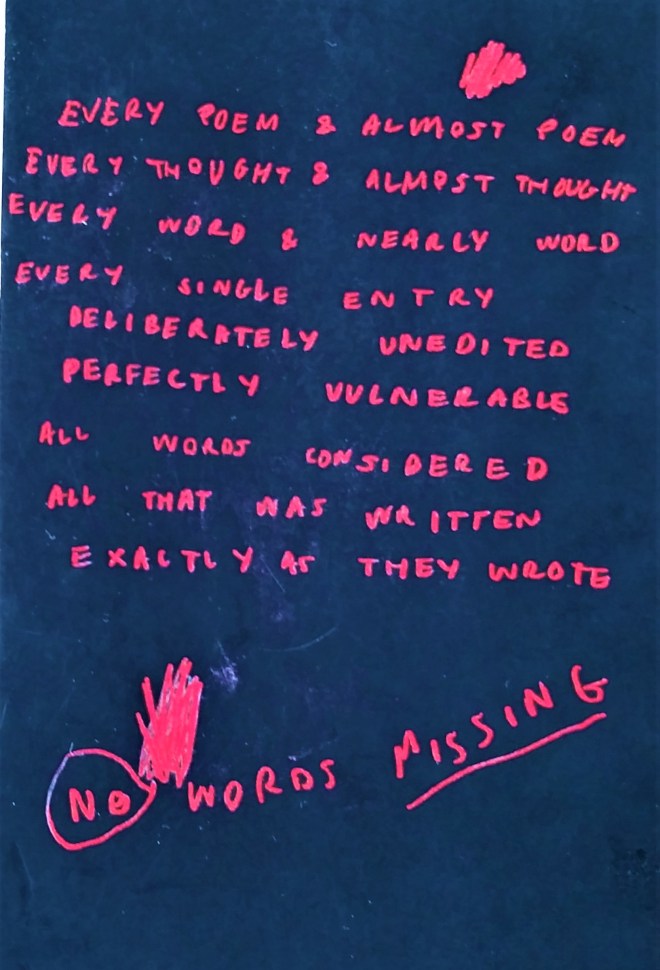 EVERY POEM & ALMOST POEM
EVERY THOUGHT & ALMOST THOUGHT
EVERY WORD & NEARLY WORD
EVERY SINGLE ENTRY
DELIBERATELY UNEDITED
PERFECTLY VULNERABLE
ALL WORDS CONSIDERED
ALL THAT WAS WRITTEN
EXACTLY AS THEY WROTE
NO WORDS MISSING